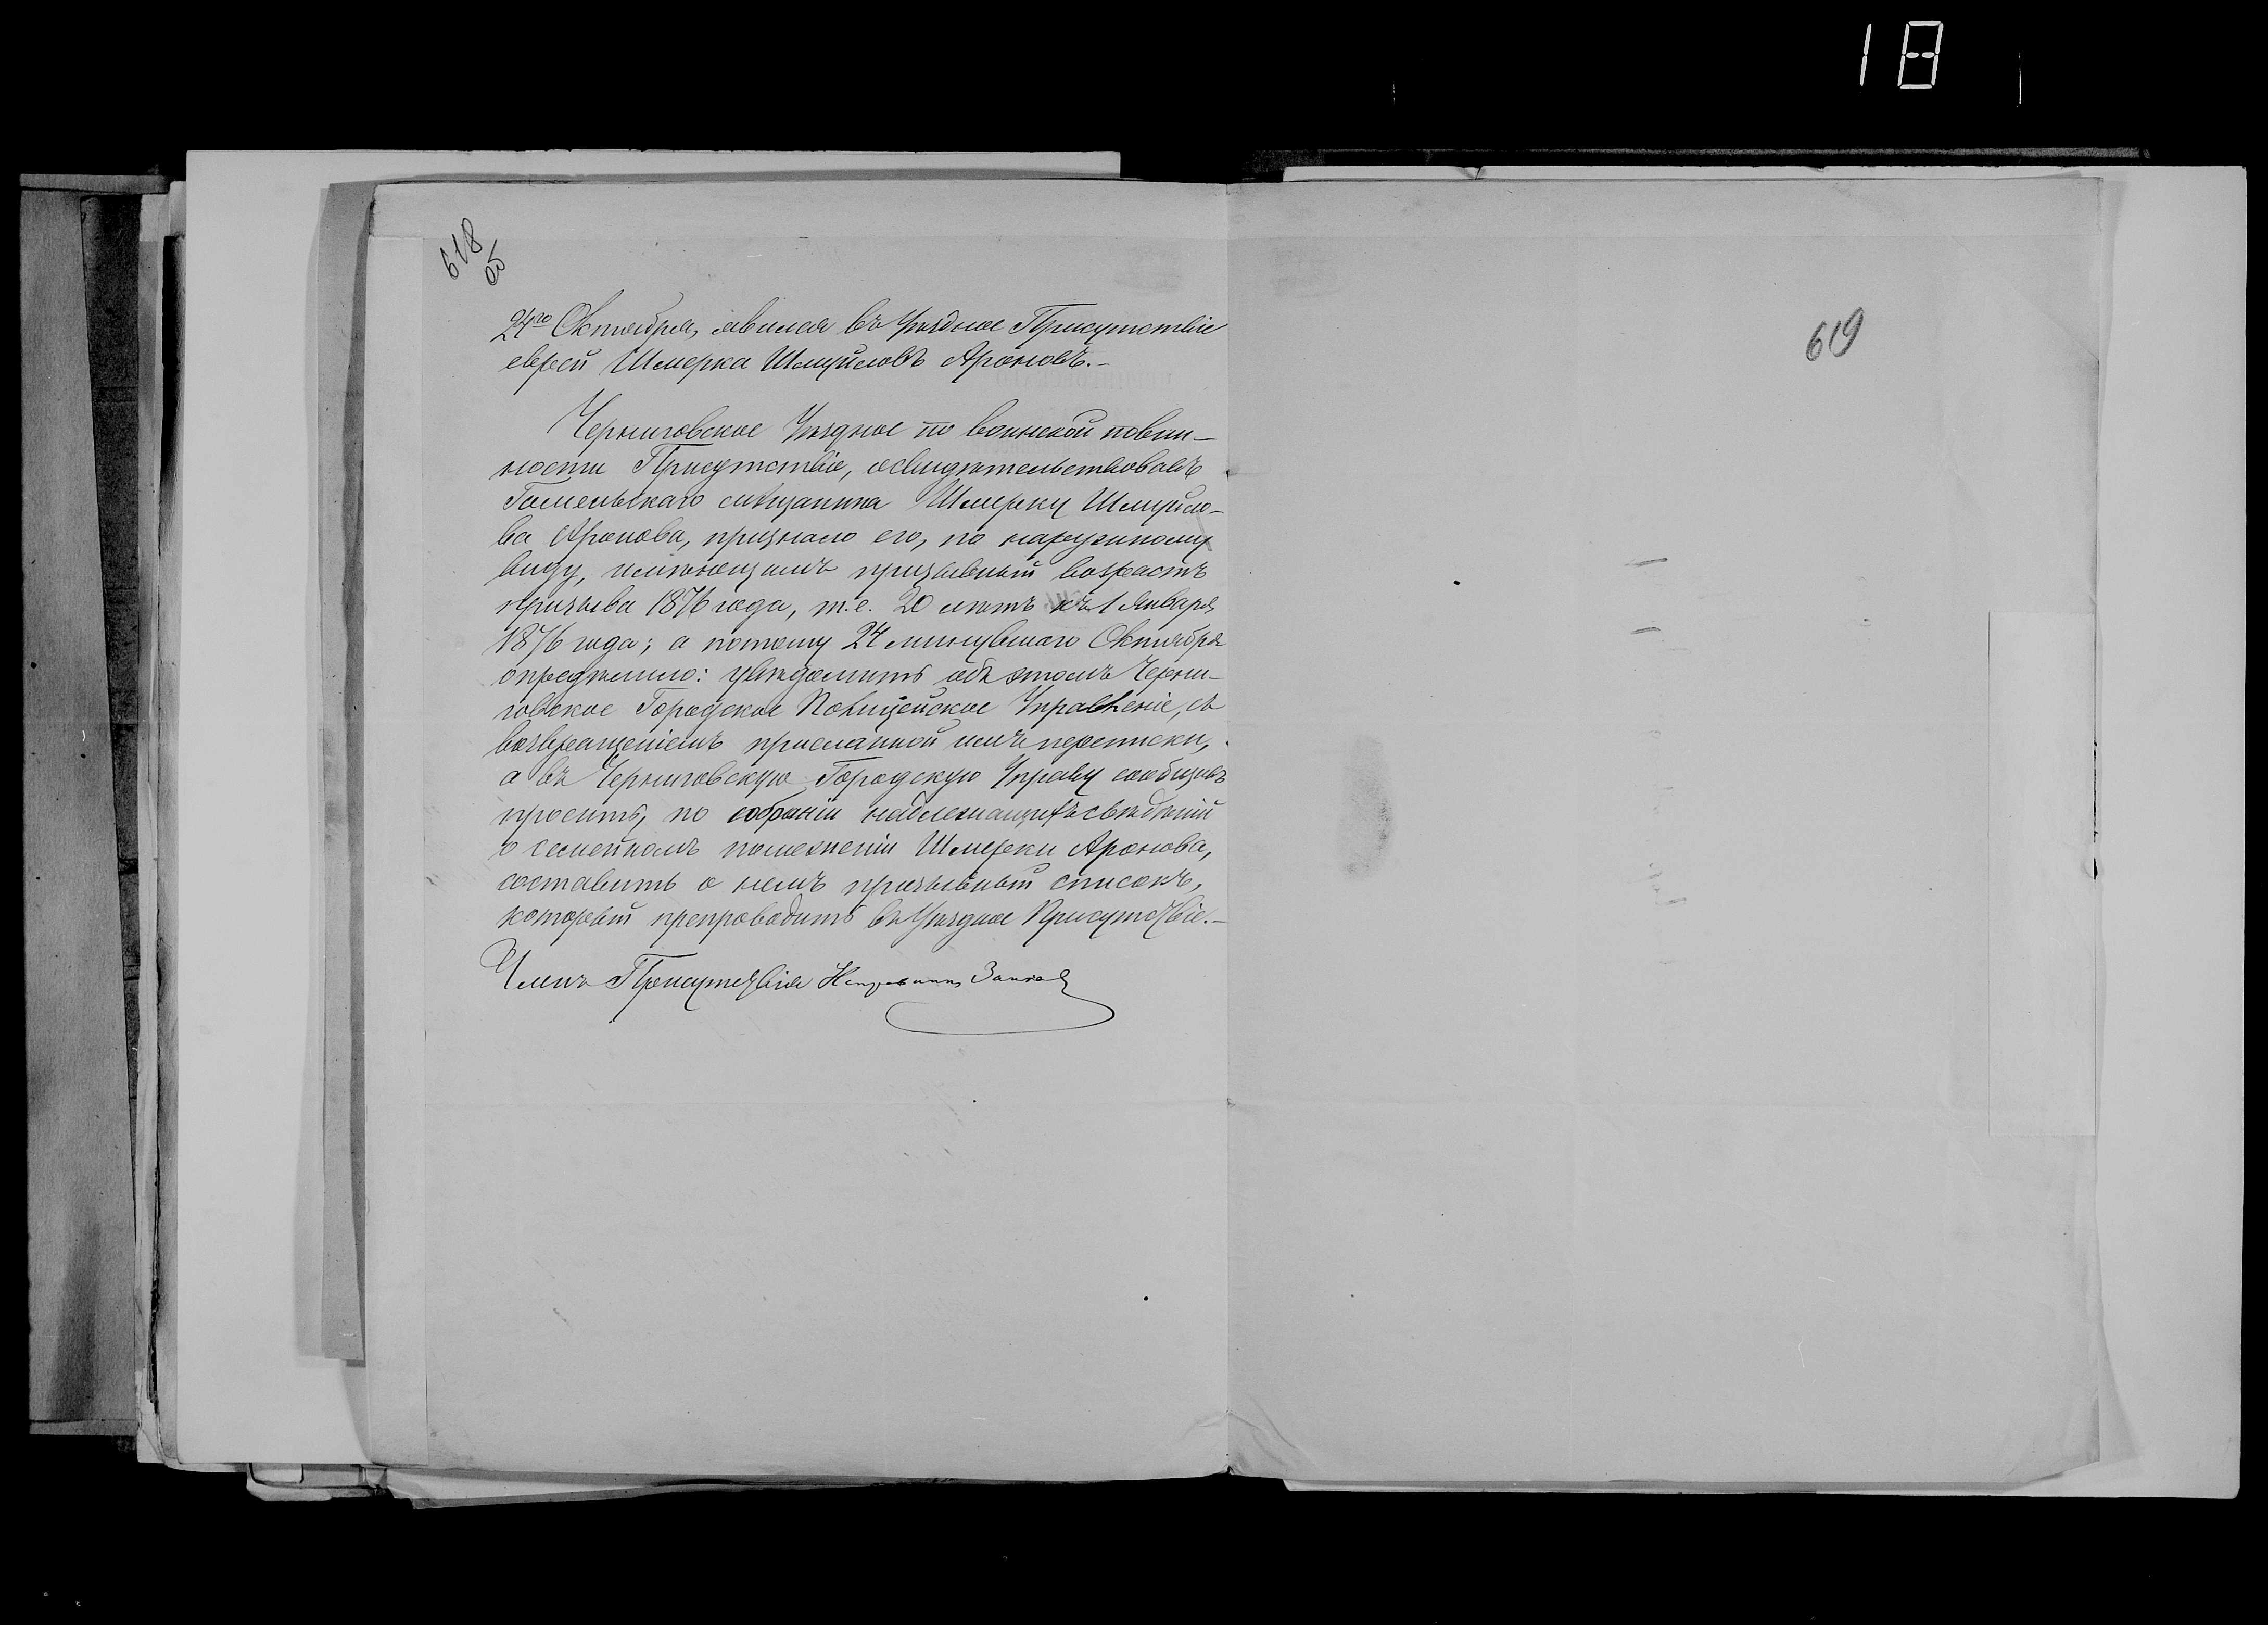 18
618
об
24го Октября, явился въ Уѣздное Присутствіе
еврей Шмерка Шмуйловъ Ароновъ.-
Черниговское Уѣздное по воинской повин-
ности Присутствіе, освидѣтельствовавъ
Гомельскаго мѣщанина Шмерку Шмуйло-
ва Аронова, признало его, по наружному
виду, имѣющимъ призывный возрастъ
призыва 1876 года, т.е. 20 лѣтъ къ 1 Января
1876 года; а потому 24 минувшаго Октября
опредѣлило: увѣдомить объ этомъ Черни-
говское Городское Полицейское Управленіе, съ
возвращеніемъ присланной имъ переписки,
а въ Черниговскую Городскую Управу сообщивъ
просить, по собраніи надлежащихъ свѣдѣній
о семейномъ положеніи Шмерки Аронова,
составить о немъ призывный списокъ,
который препроводить въ Уѣздное Присутствіе.-
Членъ Присутствія Исправникъ
619